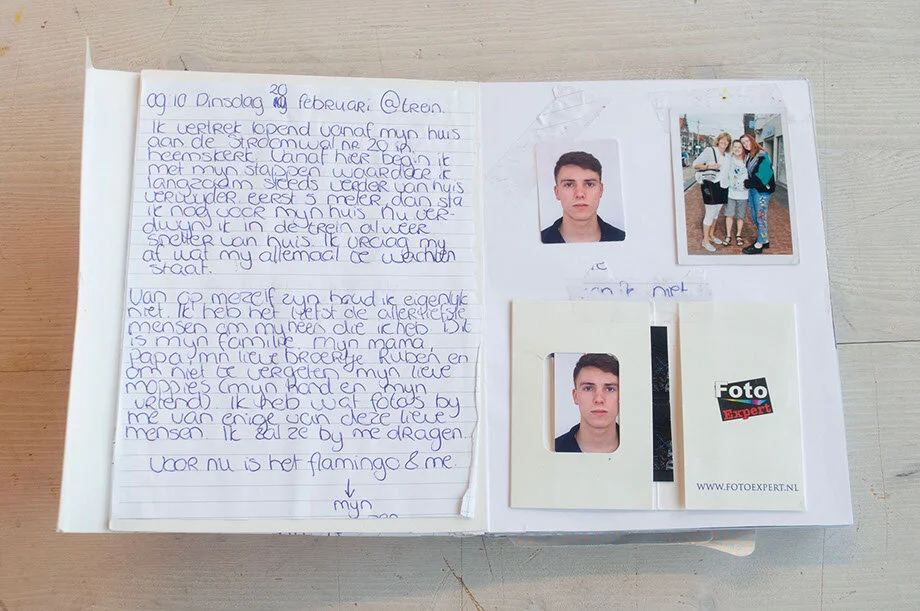 09:10 Dinsdag 20 februari @trein.
Ik vertrek lopend vanaf mijn huis
aan de Stroomwal nr 20 in
heemskerk. Vanaf hier begin ik
met mijn stappen waardoor ik
langzaam steeds verder van huis
verwijder eerst 5 meter, dan sta
ik nog voor mijn huis. Nu ver-
dwijn ik in de trein alweer
sneller van huis. Ik vraag mij
af wat mij allemaal te wachten
staat.
Van op mezelf zijn houd ik eigenlijk
niet. Ik heb het liefst de allerliefste
mensen om mij heen die ik heb. Dit
is mijn familie. Mijn mama,
papa, mijn lieve broertje Ruben en
om niet te vergeten, mijn lieve
moppies (mijn hond en mijn
vriend). Ik heb wat foto's bij
me van enige van deze lieve
mensen. Ik zal ze bij me dragen.
Voor nu is het flamingo & me.
↓
mijn
kan ik niet
Foto
Expert
WWW.FOTOEXPERT.NL